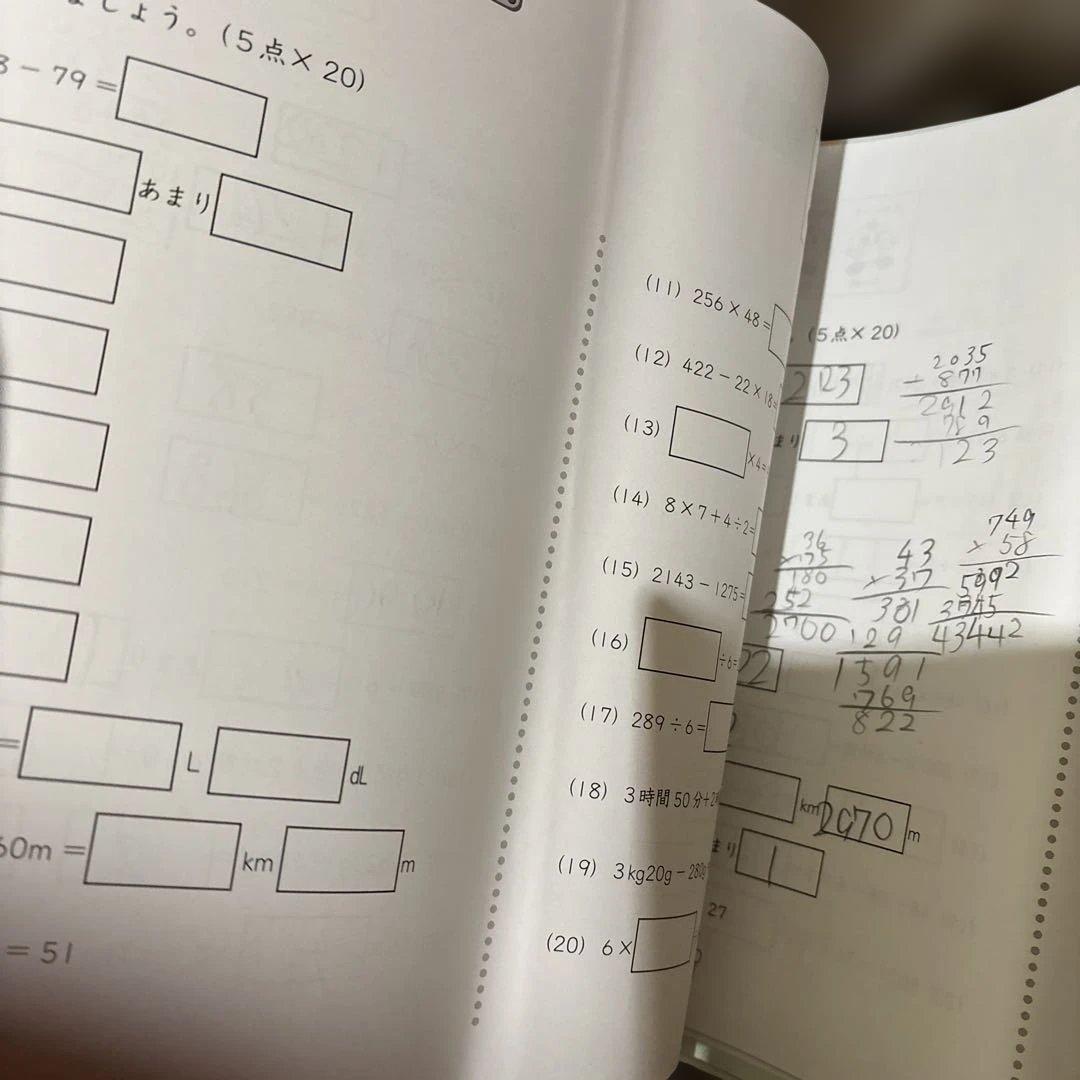 ましょう。(5点×20)
3－79＝
あまり
L dL
60m＝ km m
＝51
(11) 256×48＝
(12) 422－22×18＝
(13) ×4＝
(14) 8×7＋4÷2＝
(15) 2143－1275＝
(16) ÷6＝
(17) 289÷6＝
(18) 3時間50分＋2
(19) 3kg20g－280g
(20) 6×
(5点×20)
2035
877
2912
789
123
まり 3
36
×75
180
252
2700
43
×37
301
129
1591
769
822
749
×58
5992
3745
43442
22
km 2970 m
まり 1
27